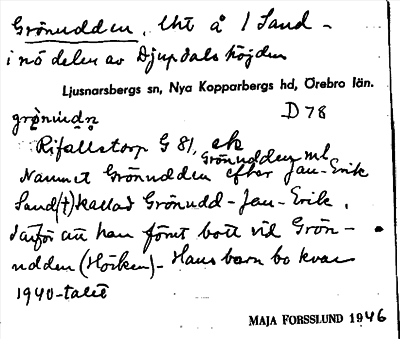 Grönudden, Uht å 1 Sand -
i nö delen av Djupdalshöjden
Ljusnarsbergs sn, Nya Kopparbergs hd, Örebro län.
D 78
grönudn
Rifallstorp G 81, ek
Grönudden ml
Namnet Grönudden efter Jan-Erik
Sand (†) kallad Grönudd-Jan-Erik,
därför att han förut bott vid Grön-
udden (Hörken)- Hans barn bo kvar
1940-talet
MAJA FORSSLUND 1946